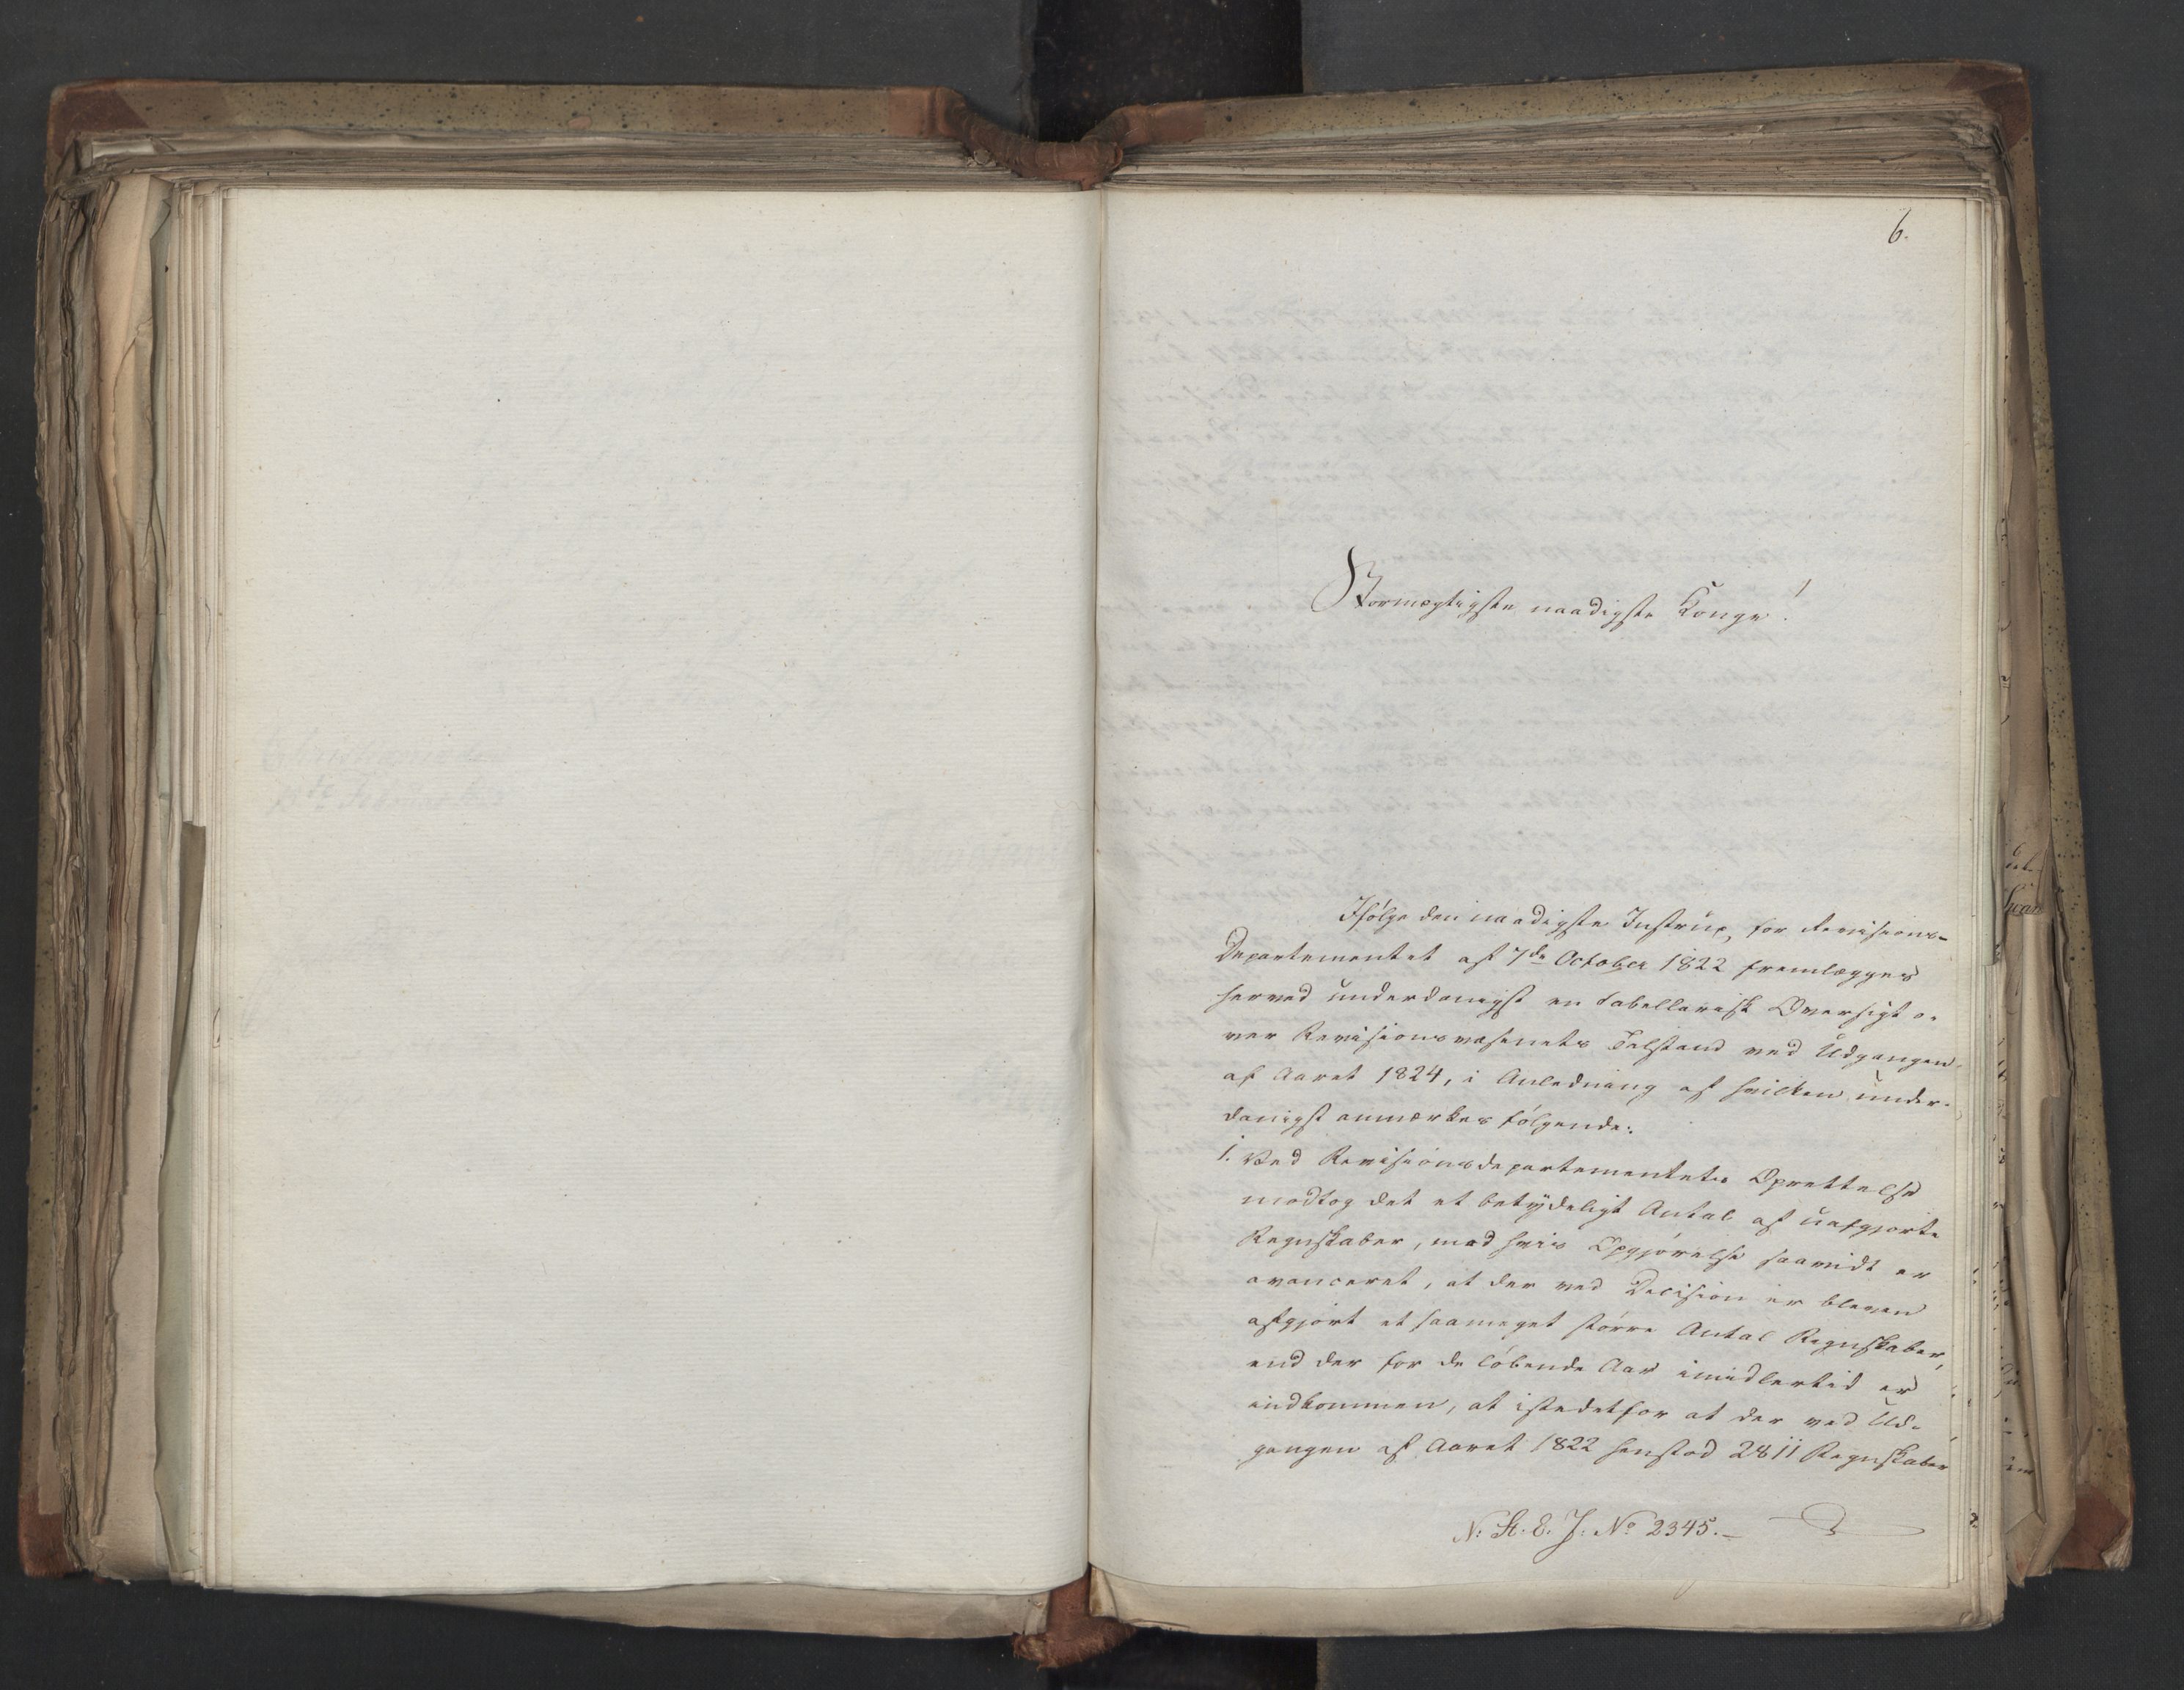 6.
Stormægtigste naadigste Konge!
Ifølge den naadigste Instrux for Revisions-
Departementet af 7de October 1822 fremlægges
herved underdanigst en tabellarisk Oversigt o-
ver Revisionsvæsenets Tilstand ved Udgangen
af Aaret 1824, i Anledning af hvilken under-
danigst anmærkes følgende:
1. Ved Revisionsdepartementets Oprettelse
modtog det et betydeligt Antal af uafgjorte
Regnskaber, med hvis Opgjørelse saavidt er
avanceret, at der ved Decision er bleven
afgjort et saameget større Antal Regnskaber,
end der for de løbende Aar imidlertid er
indkommen, at istedetfor at der ved Ud-
gangen af Aaret 1822 henstod 2811 Regnskaber
N: St. E. J: No 2345.-